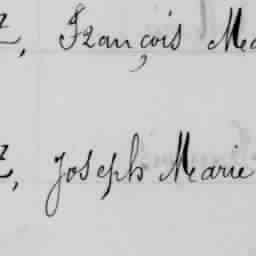 z, François Ma
z, Joseph Marie